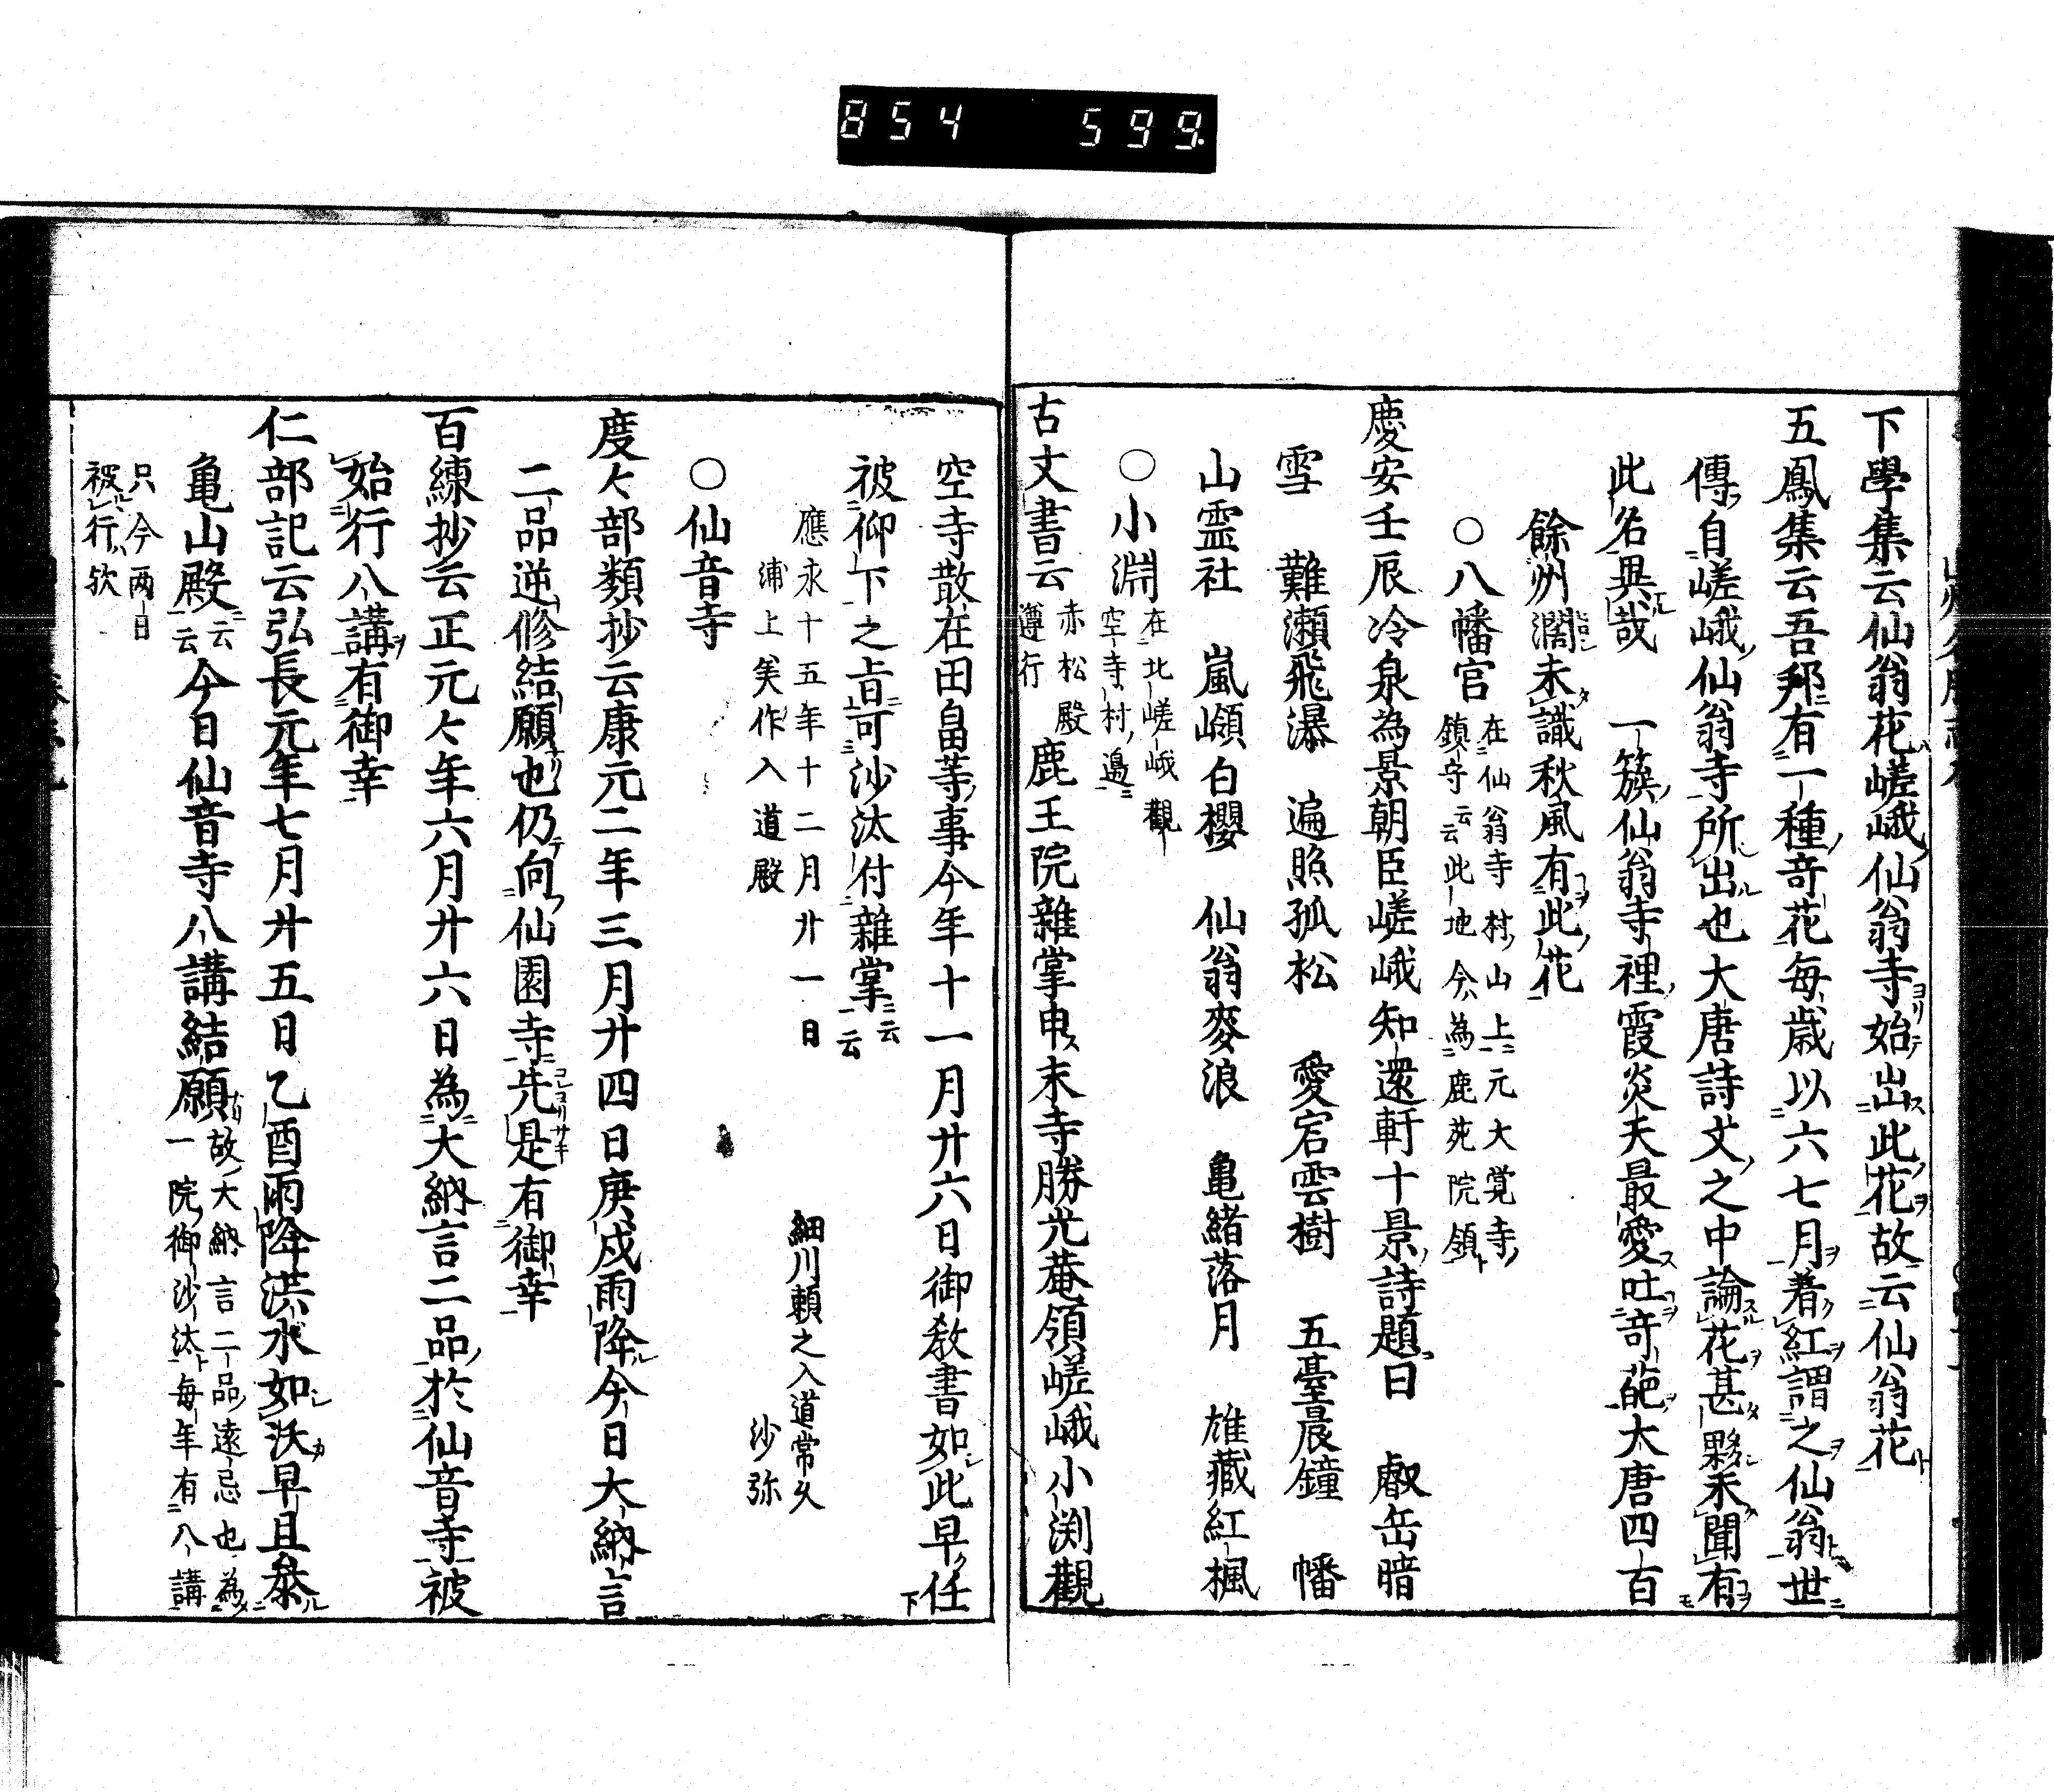 854 599.
下學集云仙翁花嵯峨仙翁寺始出此花故云仙翁花
五鳳集云吾邦有一種奇花每歲以六七月着紅謂之仙翁世
傳自嵯峨仙翁寺所出也大唐詩文之中論花甚夥未聞有
此名異哉　一簇仙翁寺裡霞炎天最愛吐奇葩大唐四百
餘州濶未識秋風有此花
○八幡宮 在仙翁寺村山上元大覚寺
鎮守云云此地今為鹿苑院領
慶安壬辰冷泉為景朝臣嵯峨知還軒十景詩題曰　叡岳暗
雪　難瀬飛瀑　遍照孤松　愛宕雲樹　五臺晨鐘　幡
山霊社　嵐巓白櫻　仙翁麥浪　亀緒落月　雄藏紅楓
○小淵 在北嵯峨觀
空寺村邊
古文書云 赤松殿
遵行　鹿王院雜掌申末寺勝光菴領嵯峨小渕觀
空寺散在田畠等事今年十一月廿六日御教書如此早任
被仰下之旨可沙汰付雜掌云云
應永十五年十二月廿一日　細川頼之入道常久
浦上美作入道殿　沙弥
○仙音寺
度々部類抄云康元二年三月廿四日庚戌雨降今日大納言
二品逆修結願也仍向仙園寺先是有御幸
百練抄云正元々年六月廿六日為大納言二品於仙音寺被
始行八講有御幸
仁部記云弘長元年七月廿五日乙酉雨降洪水如沃早且叅
亀山殿云云今日仙音寺八講結願 故大納言二品遠忌也為
一院御沙汰每年有八講
只今両日
被行欤